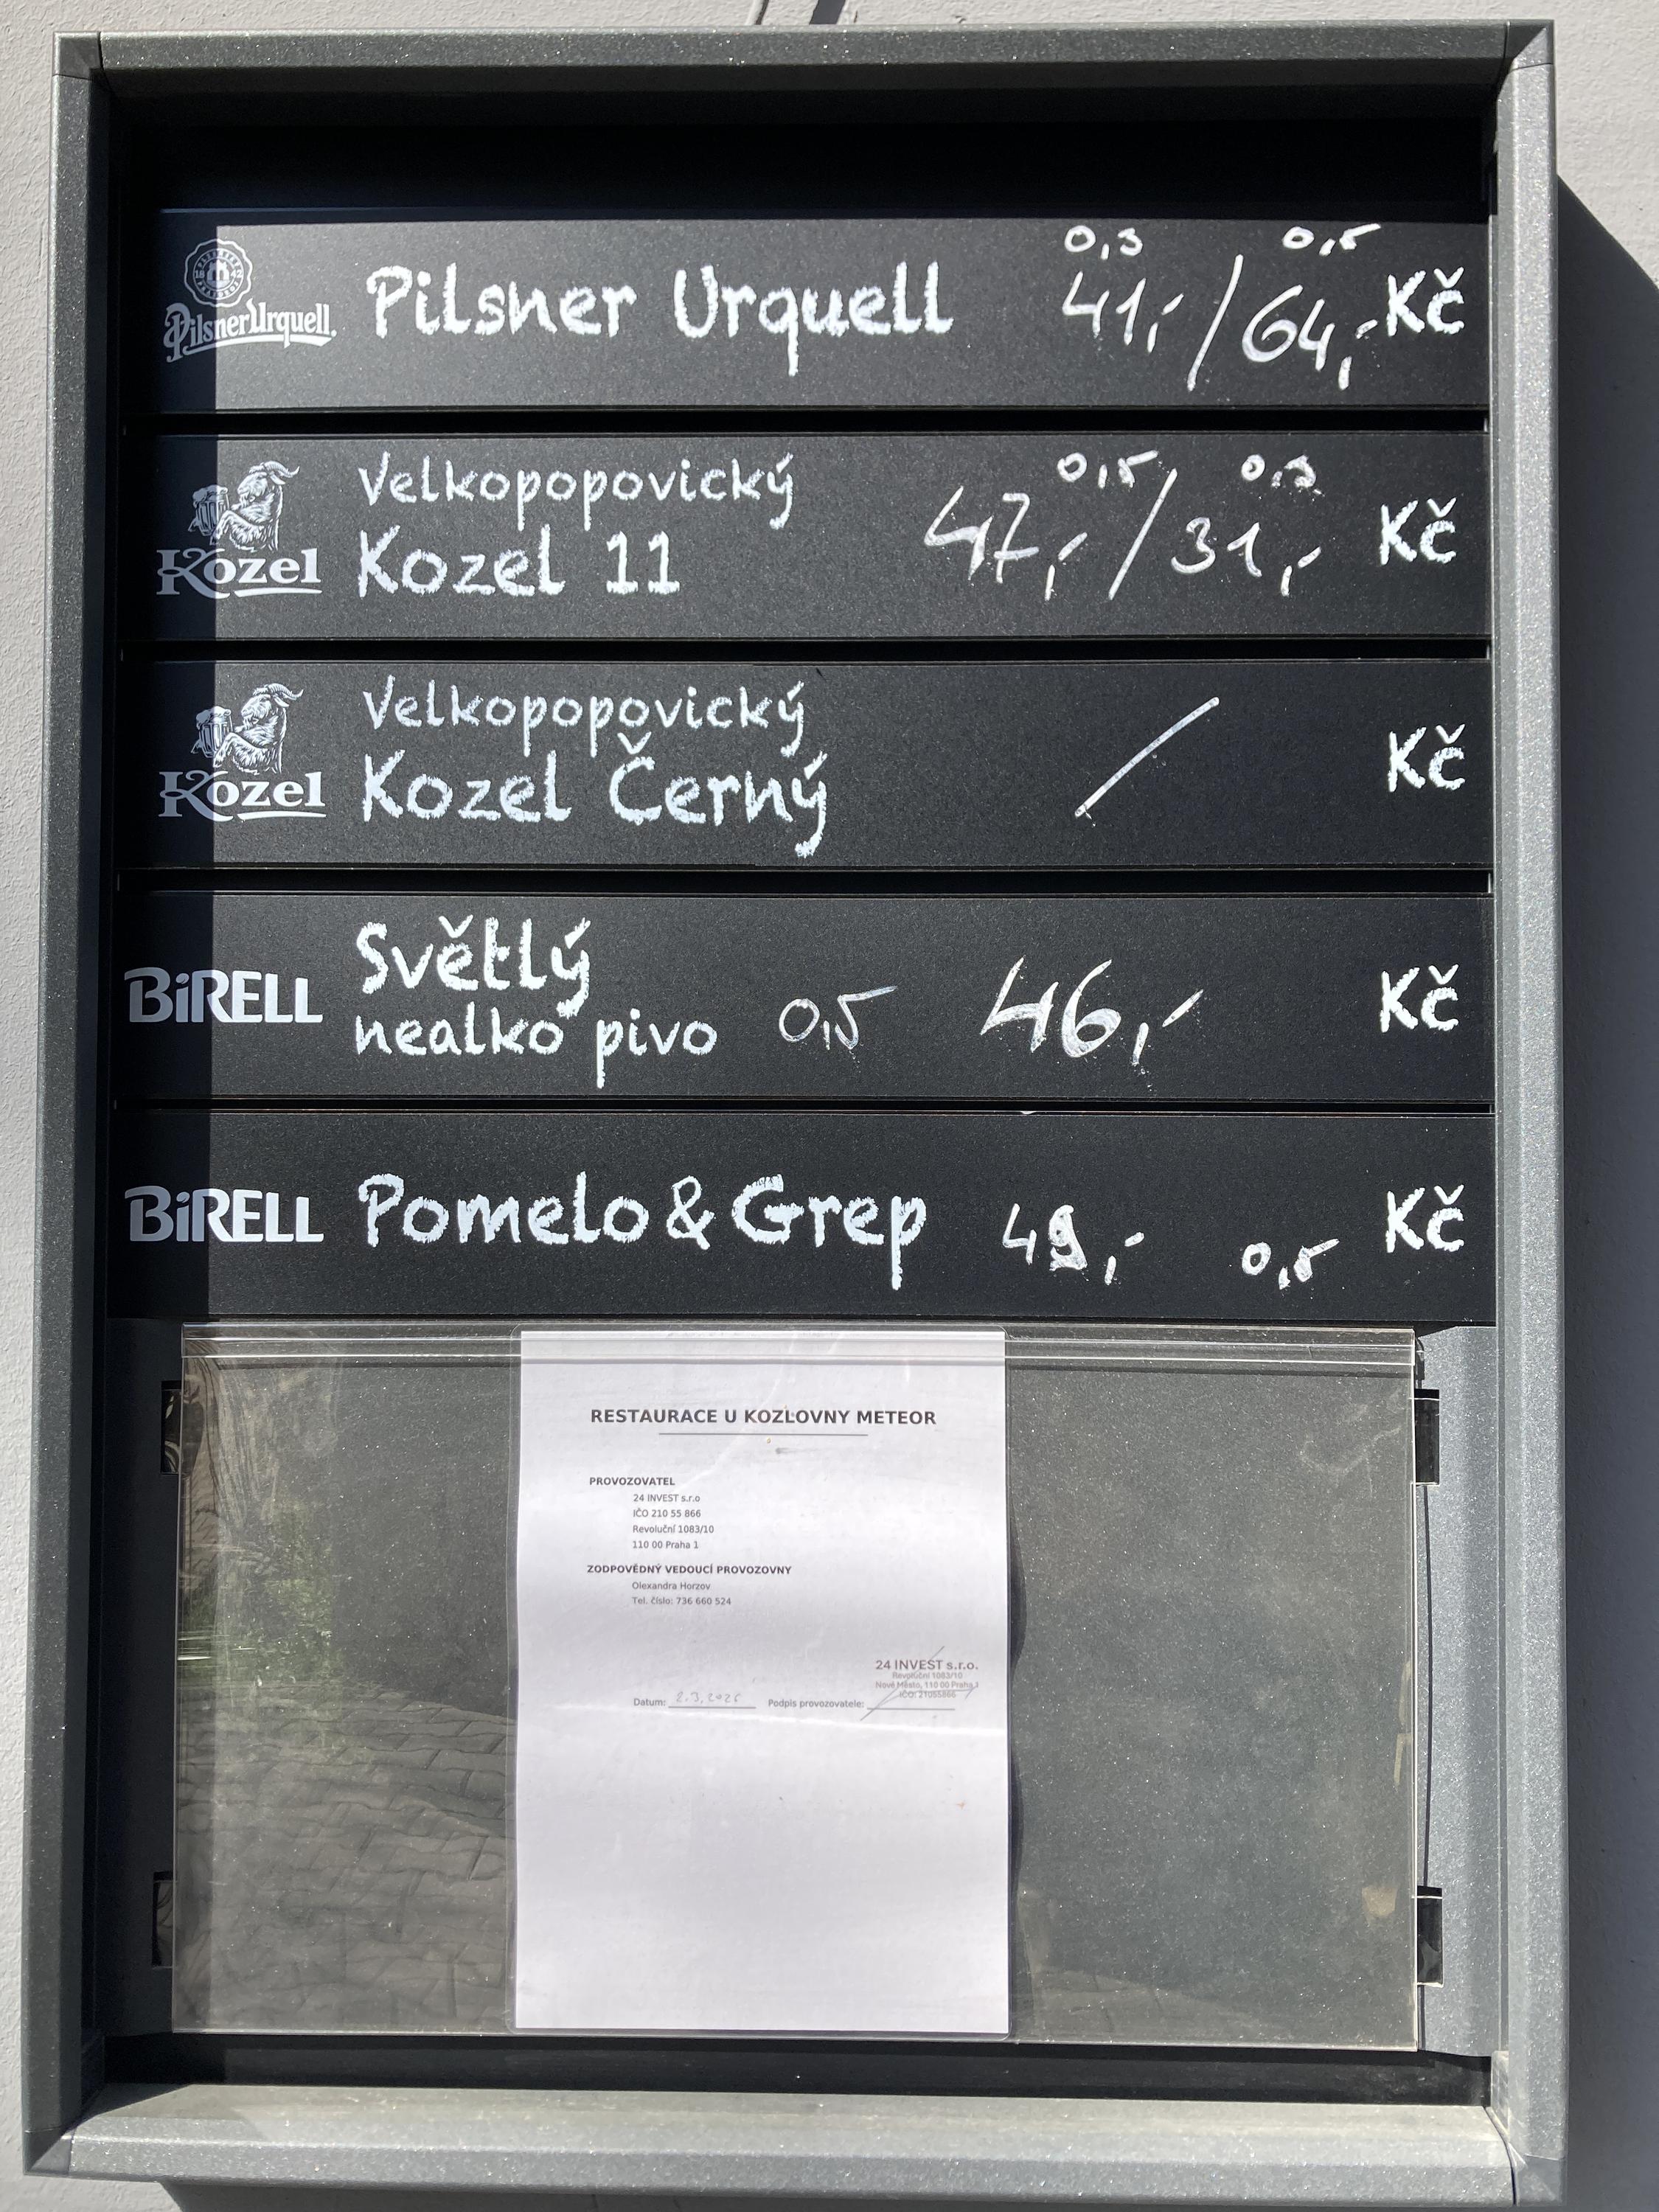 0,3 0,5
Pilsner Urquell. Pilsner Urquell 41,- / 64,- Kč
Velkopopovický 0,5 0,3
Kozel Kozel 11 47,- / 31,- Kč
Velkopopovický
Kozel Kozel Černý / Kč
Světlý
BiRELL nealko pivo 0,5 46,- Kč
BiRELL Pomelo & Grep 49,- 0,5 Kč
RESTAURACE U KOZLOVNY METEOR
PROVOZOVATEL
24 INVEST s.r.o
IČO 210 55 866
Revoluční 1083/10
110 00 Praha 1
ZODPOVĚDNÝ VEDOUCÍ PROVOZOVNY
Olexandra Horzov
Tel. číslo: 736 660 524
24 INVEST s.r.o.
Revoluční 1083/10
Nové Město, 110 00 Praha 1
IČO: 21055866
Datum: Podpis provozovatele: